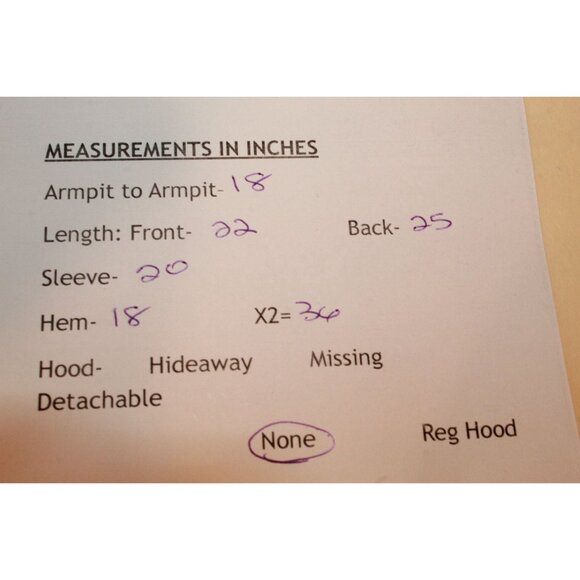 MEASUREMENTS IN INCHES
Armpit to Armpit- 18
Length: Front- 22 Back- 25
Sleeve- 20
Hem- 18 X2= 36
Hood- Hideaway Missing
Detachable
None Reg Hood